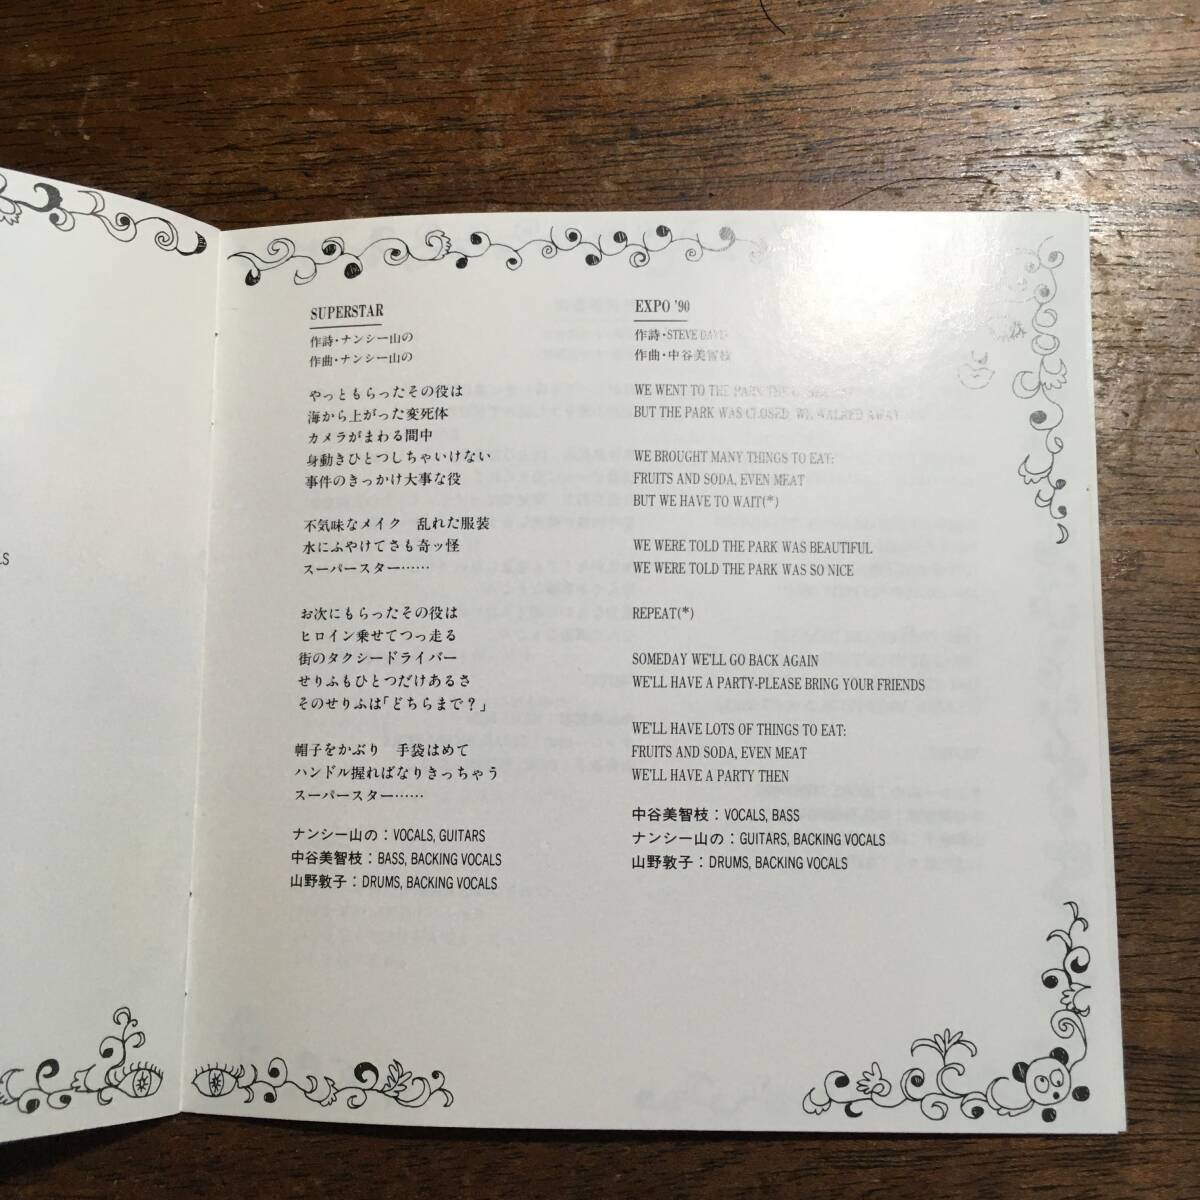 LS
SUPERSTAR
作詩・ナンシー山の
作曲・ナンシー山の
やっともらったその役は
海から上がった変死体
カメラがまわる間中
身動きひとつしちゃいけない
事件のきっかけ大事な役
不気味なメイク　乱れた服装
水にふやけてさも奇ッ怪
スーパースター……
お次にもらったその役は
ヒロイン乗せてつっ走る
街のタクシードライバー
せりふもひとつだけあるさ
そのせりふは「どちらまで？」
帽子をかぶり　手袋はめて
ハンドル握ればなりきっちゃう
スーパースター……
ナンシー山の：VOCALS, GUITARS
中谷美智枝：BASS, BACKING VOCALS
山野敦子：DRUMS, BACKING VOCALS
EXPO '90
作詩・STEVE
作曲・中谷美智枝
WE WENT TO THE PARK
BUT THE PARK WAS CLOSED, WE WALKED AWAY
WE BROUGHT MANY THINGS TO EAT:
FRUITS AND SODA, EVEN MEAT
BUT WE HAVE TO WAIT(*)
WE WERE TOLD THE PARK WAS BEAUTIFUL
WE WERE TOLD THE PARK WAS SO NICE
REPEAT(*)
SOMEDAY WE'LL GO BACK AGAIN
WE'LL HAVE A PARTY-PLEASE BRING YOUR FRIENDS
WE'LL HAVE LOTS OF THINGS TO EAT:
FRUITS AND SODA, EVEN MEAT
WE'LL HAVE A PARTY THEN
中谷美智枝：VOCALS, BASS
ナンシー山の：GUITARS, BACKING VOCALS
山野敦子：DRUMS, BACKING VOCALS